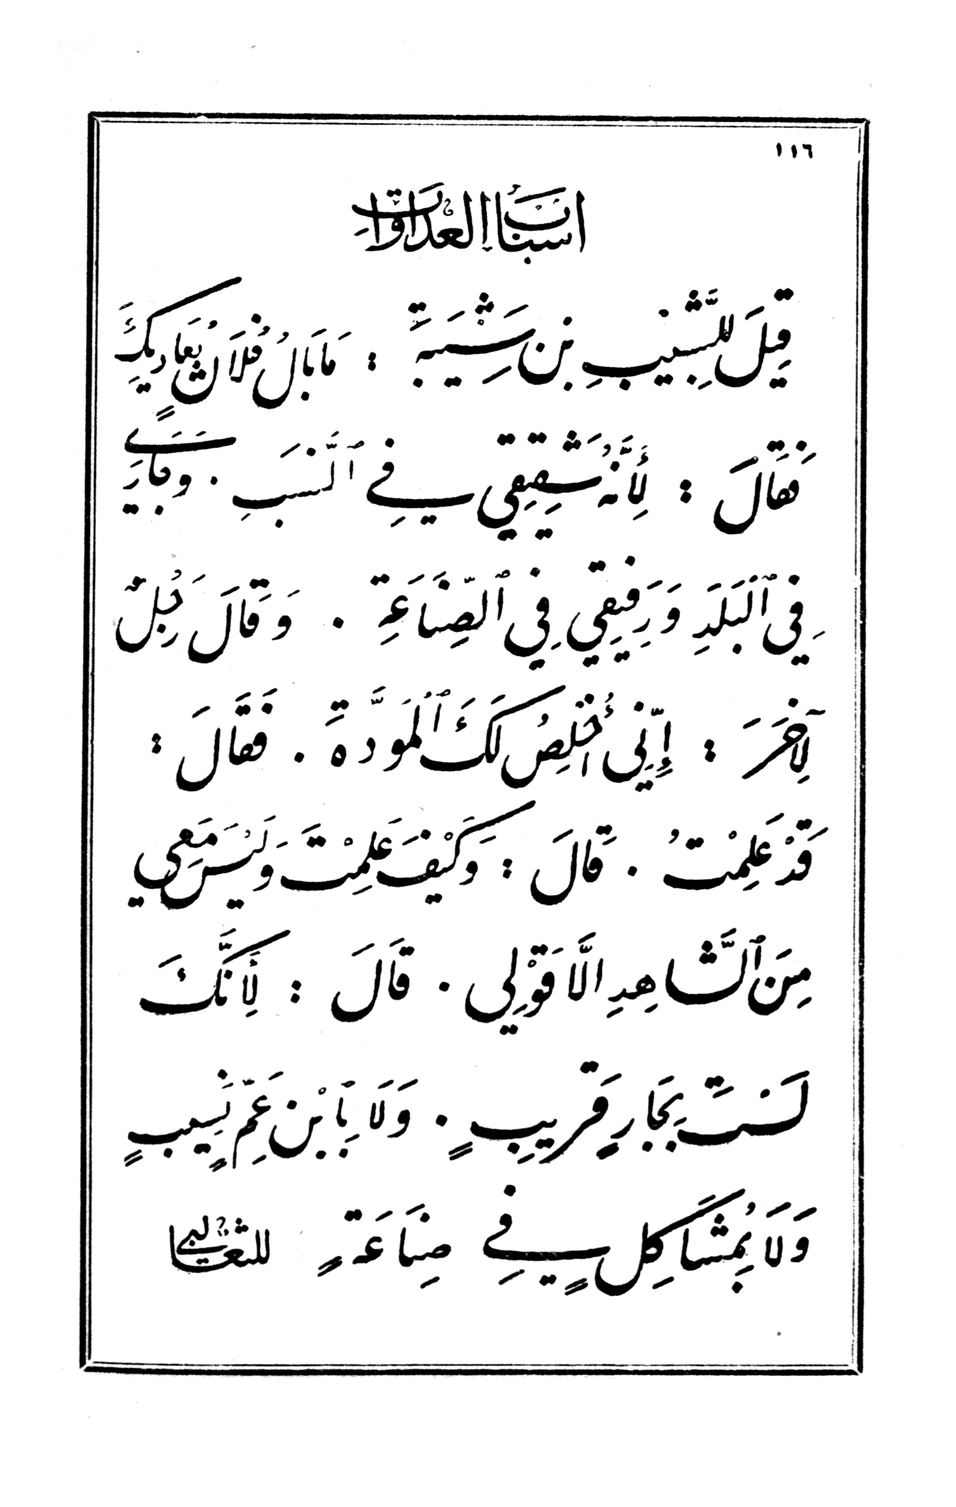 ١١٦
اسباب العداوات
قِيلَ لِلشَّبِيبِ بْنِ شَيْبَةَ : مَا بَالُ فُلَانٍ يُعَادِيكَ
فَقَالَ : لِأَنَّهُ شَقِيقِي فِي ٱلنَّسَبِ . وَجَارِي
فِي ٱلْبَلَدِ وَرَفِيقِي فِي ٱلصِّنَاعَةِ . وَقَالَ رَجُلٌ
لِآخَرَ : إِنِّي أُخْلِصُ لَكَ ٱلْمَوَدَّةَ . فَقَالَ :
قَدْ عَلِمْتُ . قَالَ : وَكَيْفَ عَلِمْتَ وَلَيْسَ مَعِي
مِنَ ٱلشَّاهِدِ الَّا قَوْلِي . قَالَ : لِأَنَّكَ
لَسْتَ بِجَارٍ قَرِيبٍ . وَلَا بِٱبْنِ عَمٍّ نَسِيبٍ
وَلَا بِمُشَاكِلٍ فِي صِنَاعَةٍ للثعالبي